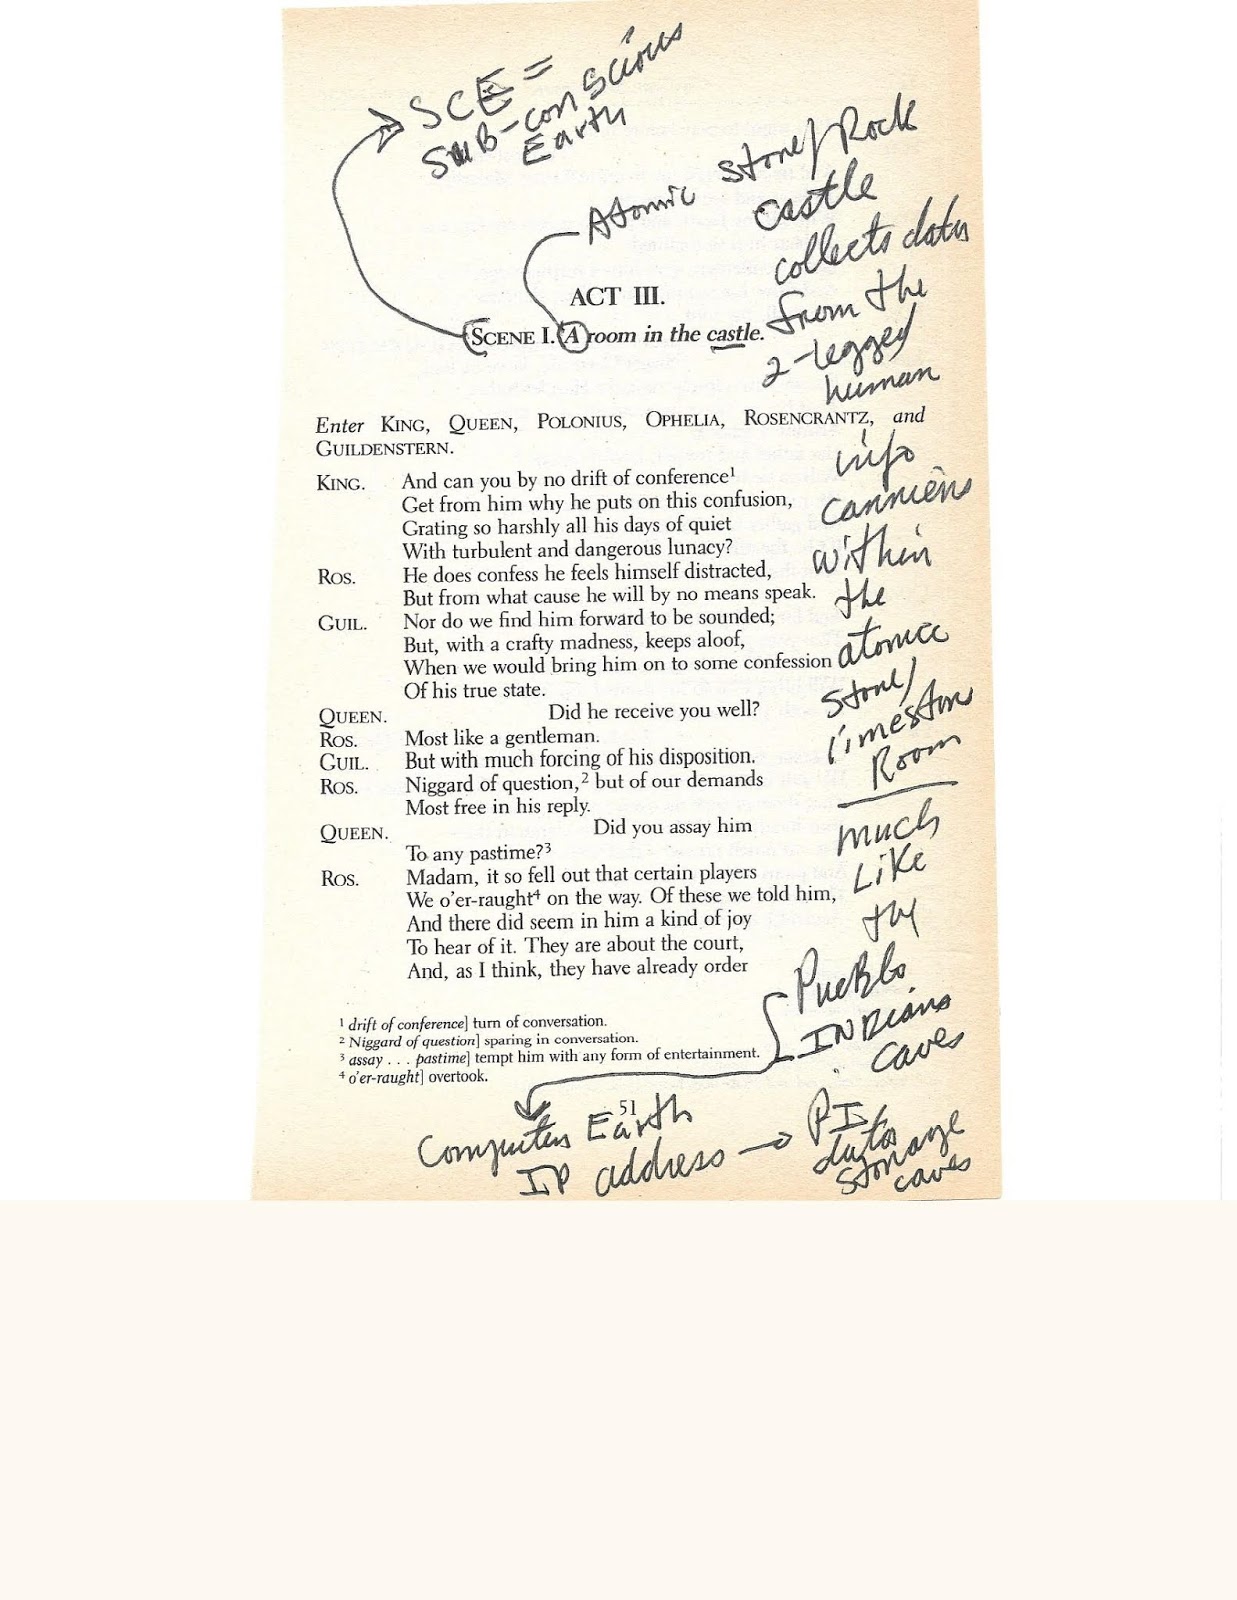 SCE =
SUB-conscious
Earth
Atomic stone/Rock
castle
collects data
from the
2-legged
human
ACT III.
SCENE I. A room in the castle.
Enter KING, QUEEN, POLONIUS, OPHELIA, ROSENCRANTZ, and
GUILDENSTERN.
KING. And can you by no drift of conference1
Get from him why he puts on this confusion,
Grating so harshly all his days of quiet
With turbulent and dangerous lunacy?
ROS. He does confess he feels himself distracted,
But from what cause he will by no means speak.
GUIL. Nor do we find him forward to be sounded;
But, with a crafty madness, keeps aloof,
When we would bring him on to some confession
Of his true state.
QUEEN. Did he receive you well?
ROS. Most like a gentleman.
GUIL. But with much forcing of his disposition.
ROS. Niggard of question,2 but of our demands
Most free in his reply.
QUEEN. Did you assay him
To any pastime?3
ROS. Madam, it so fell out that certain players
We o'er-raught4 on the way. Of these we told him,
And there did seem in him a kind of joy
To hear of it. They are about the court,
And, as I think, they have already order
info
carriers
within
the
atomic
stone/
limestone
Room
much
Like
the
Pueblo
INDians
caves
1 drift of conference] turn of conversation.
2 Niggard of question] sparing in conversation.
3 assay . . . pastime] tempt him with any form of entertainment.
4 o'er-raught] overtook.
51
Computer Earth
IP address → PI
data
storage
caves